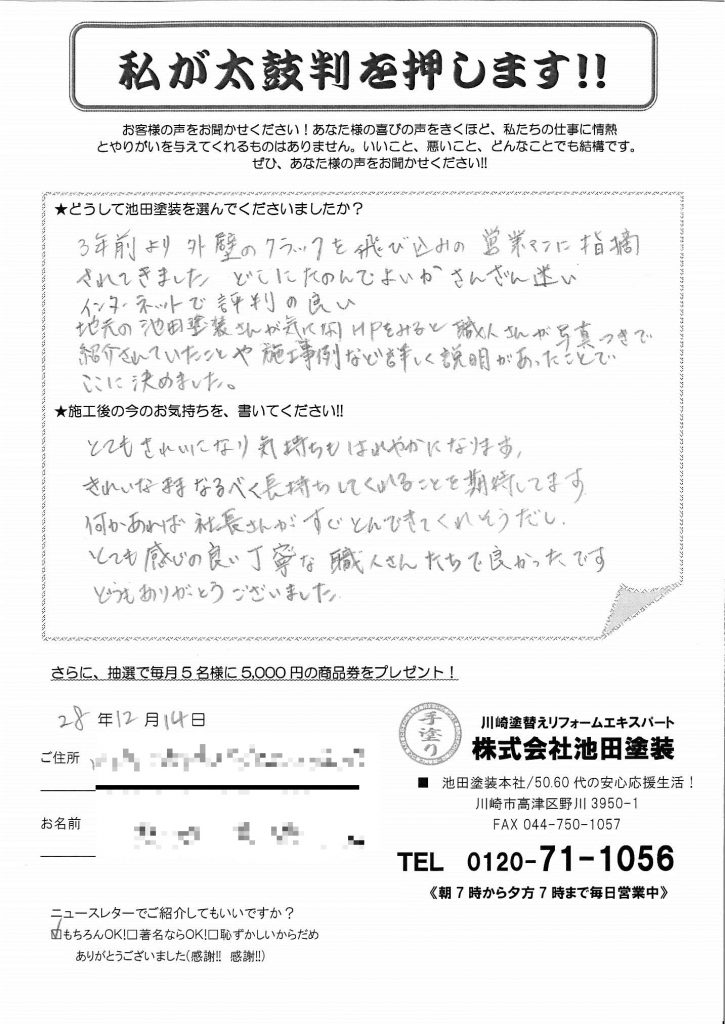 私が太鼓判を押します!!
お客様の声をお聞かせください！あなた様の喜びの声をきくほど、私たちの仕事に情熱
とやりがいを与えてくれるものはありません。いいこと、悪いこと、どんなことでも結構です。
ぜひ、あなた様の声をお聞かせください!!
★どうして池田塗装を選んでくださいましたか？
3年前より外壁のクラックを飛び込みの営業マンに指摘
されてきました どこにたのんでよいかさんざん迷い
インターネットで評判の良い
地元の池田塗装さんが気になりHPをみると職人さんが写真つきで
紹介されていたことや施工事例など詳しく説明があったことで
ここに決めました。
★施工後の今のおt気持ちを、書いてください!!
とてもきれいになり気持ちもはれやかになります。
きれいなままなるべく長持ちしてくれることを期待してます
何かあれば社長さんがすぐとんできてくれそうだし、
とても感じの良い丁寧な職人さんたちで良かったです
どうもありがとうございました
さらに、抽選で毎月5名様に5,000円の商品券をプレゼント！
28年12月14日
ご住所
お名前
手塗り
川崎塗替えリフォームエキスパート
株式会社池田塗装
■ 池田塗装本社/50.60代の安心応援生活！
川崎市高津区野川3950-1
FAX 044-750-1057
TEL 0120-71-1056
《朝7時から夕方7時まで毎日営業中》
ニュースレターでご紹介してもいいですか？
☑もちろんOK!□著名ならOK!□恥ずかしいからだめ
ありがとうございました(感謝!! 感謝!!)